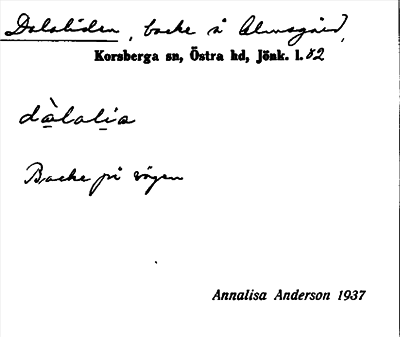 Dalaliden, backe å Almsgård,
Korsberga sn, Östra hd, Jönk. l. 82
dàlalia
Backe på vägen
Annalisa Anderson 1937